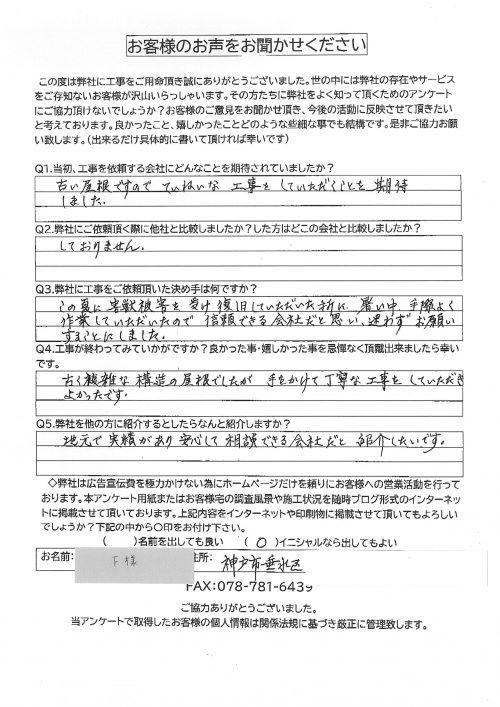 お客様のお声をお聞かせください
この度は弊社に工事をご用命頂き誠にありがとうございました。世の中には弊社の存在やサービス
をご存知ないお客様が沢山いらっしゃいます。その方たちに弊社をよく知って頂くためのアンケート
にご協力頂けないでしょうか？お客様のご意見をお聞かせ頂き、今後の活動に反映させて頂きたい
と考えております。良かったこと、嬉しかったことどのような些細な事でも結構です。是非ご協力お願
い致します。（出来るだけ具体的に書いて頂ければ幸いです）
Q1.当初、工事を依頼する会社にどんなことを期待されていましたか？
古い屋根ですので ていねいな 工事を していただくことを 期待
しました.
Q2.弊社にご依頼頂く際に他社と比較しましたか？した方はどこの会社と比較しましたか？
しておりません.
Q3.弊社に工事をご依頼頂いた決め手は何ですか？
この夏に 害獣被害を 受け 復旧していただいた折に、暑い中、手際よく
作業していただいたので 信頼できる会社だと思い、迷わず お願い
することにしました.
Q4.工事が終わってみていかがですか？良かった事・嬉しかった事を忌憚なく頂戴出来ましたら幸い
です。
古く複雑な 構造の屋根でしたが 手をかけて丁寧な 工事を していただき
よかったです.
Q5.弊社を他の方に紹介するとしたらなんと紹介しますか？
地元で 実績があり 安心して 相談できる会社だと 紹介したいです.
◇弊社は広告宣伝費を極力かけない為にホームページだけを頼りにお客様への営業活動を行って
おります。本アンケート用紙またはお客様宅の調査風景や施工状況を随時ブログ形式のインターネッ
トに掲載させて頂いております。上記内容をインターネットや印刷物に掲載させて頂いてもよろしい
でしょうか？下記の中から〇印をお付け下さい。
（　）名前を出しても良い （ O ）イニシャルなら出してもよい
お名前: F 様 住所: 神戸市垂水区
FAX:078-781-6439
ご協力ありがとうございました。
当アンケートで取得したお客様の個人情報は関係法規に基づき厳正に管理致します。